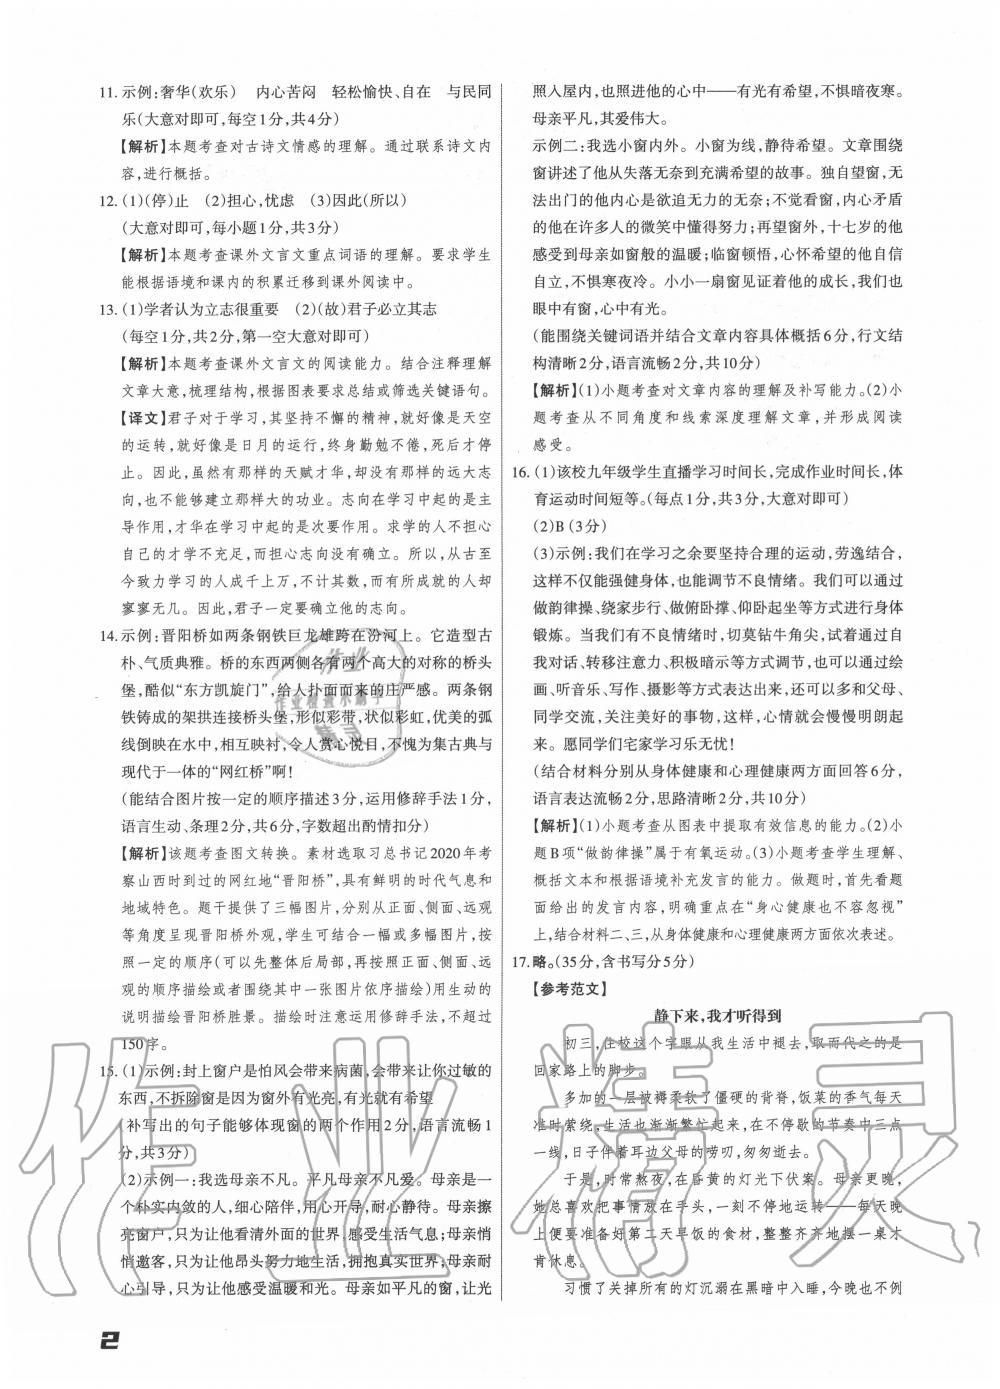 11. 示例:奢华(欢乐)　内心苦闷　轻松愉快、自在　与民同
乐(大意对即可,每空1分,共4分)
【解析】本题考查对古诗文情感的理解。通过联系诗文内
容,进行概括。
12. (1)(停)止　(2)担心,忧虑　(3)因此(所以)
(大意对即可,每小题1分,共3分)
【解析】本题考查课外文言文重点词语的理解。要求学生
能根据语境和课内的积累迁移到课外阅读中。
13. (1)学者认为立志很重要　(2)(故)君子必立其志
(每空1分,共2分,第一空大意对即可)
【解析】本题考查课外文言文的阅读能力。结合注释理解
文章大意,梳理结构,根据图表要求总结或筛选关键语句。
【译文】君子对于学习,其坚持不懈的精神,就好像是天空
的运转,就好像是日月的运行,终身勤勉不倦,死后才停
止。因此,虽然有那样的天赋才华,却没有那样的远大志
向,也不能够建立那样大的功业。志向在学习中起的是主
导作用,才华在学习中起的是次要作用。求学的人不担心
自己的才学不充足,而担心志向没有确立。所以,从古至
今致力学习的人成千上万,不计其数,而有所成就的人却
寥寥无几。因此,君子一定要确立他的志向。
14. 示例:晋阳桥如两条钢铁巨龙雄跨在汾河上。它造型古
朴、气质典雅。桥的东西两侧各有两个高大的对称的桥头
堡,酷似“东方凯旋门”,给人扑面而来的庄严感。两条钢
铁铸成的架拱连接桥头堡,形似彩带,状似彩虹,优美的弧
线倒映在水中,相互映衬,令人赏心悦目,不愧为集古典与
现代于一体的“网红桥”啊!
(能结合图片按一定的顺序描述3分,运用修辞手法1分,
语言生动、条理2分,共6分,字数超出酌情扣分)
【解析】该题考查图文转换。素材选取习总书记2020年考
察山西时到过的网红地“晋阳桥”,具有鲜明的时代气息和
地域特色。题干提供了三幅图片,分别从正面、侧面、远观
等角度呈现晋阳桥外观,学生可结合两幅或多幅图片,按
照一定的顺序(可以先整体后局部,再按照正面、侧面、远观
的顺序描绘或者围绕其中一张图片依序描绘)用生动的
说明描绘晋阳桥胜景。描绘时注意运用修辞手法,不超过
150字。
15. (1)示例:封上窗户是怕风会带来病菌,会带来让你过敏的
东西,不拆除窗是因为窗外有光亮,有光就有希望
(补写出的句子能够体现窗的两个作用2分,语言流畅1
分,共3分)
(2)示例一:我选母亲不凡。平凡母亲不凡爱。母亲是一
个朴实内敛的人,细心陪伴,用心开导,耐心静待。母亲擦
亮窗户,只为让他看清外面的世界,感受生活气息;母亲悄
悄邀客,只为让他昂头努力生活,拥抱真实世界。母亲耐
心引导,只为让他感受温暖和光。母亲如平凡的窗,让光
照入屋内,也照进他的心中——有光有希望,不惧暗夜寒。
母亲平凡,其爱伟大。
示例二:我选小窗内外。小窗为线,静待希望。文章围绕
窗讲述了他从失落无奈到充满希望的故事。独自望窗,无
法出门的他内心是欲追无力的无奈;不觉看窗,内心矛盾
的他在许多人的微笑中懂得努力;再望窗外,十七岁的他
感受到母亲如窗般的温暖;临窗顿悟,心怀希望的他自信
自立,不惧寒夜冷。小小一扇窗见证着他的成长,我们也
眼中有窗,心中有光。
(能围绕关键词语并结合文章内容具体概括6分,行文结
构清晰2分,语言流畅2分,共10分)
【解析】(1)小题考查对文章内容的理解及补写能力。(2)小
题考查从不同角度和线索深度理解文章,并形成阅读
感受。
16. (1)该校九年级学生直播学习时间长,完成作业时间长,体
育运动时间短等。(每点1分,共3分,大意对即可)
(2)B(3分)
(3)示例:我们在学习之余要坚持合理的运动,劳逸结合,
这样不仅能强健身体,也能调节不良情绪。我们可以通过
做韵律操、绕家步行、做俯卧撑、仰卧起坐等方式进行身体
锻炼。当我们有不良情绪时,切莫钻牛角尖,试着通过自
我对话、转移注意力、积极暗示等方式调节,可以选择用绘
画、听音乐、写作、摄影等方式表达出来,还可以多和父母、
同学交流,关注美好的事物,这样,心情就会慢慢明朗起
来。愿同学们宅家学习乐无忧!
(结合材料分别从身体健康和心理健康两方面回答6分,
语言表达流畅2分,思路清晰2分,共10分)
【解析】(1)小题考查从图表中提取有效信息的能力。(2)小
题B项“做韵律操”属于有氧运动。(3)小题考查学生理解、
概括文本和根据语境补充发言的能力。做题时,首先看题
面给出的发言内容,明确重点在“身心健康也不容忽视”
上,结合材料二、三,从身体健康和心理健康两方面依次表述。
17. 略。(35分,含书写分5分)
【参考范文】
静下来,我才听得到
初三,住校这个字眼从我生活中褪去,取而代之的是
回家路上的脚步。
多加的一层被褥柔软了僵硬的背脊,饭菜的香气每天
准时萦绕,生活也渐渐繁忙起来,在不停歇的节奏中三点
一线,日子伴着耳边父母的唠叨,匆匆逝去。
于是,时常熬夜,在昏黄的灯光下伏案。母亲更晚,
她总喜欢把家务放在手头,一刻不停地运转——每天晚
上便要准备好第二天早饭的食材,整整齐齐地摆一桌才
肯休息。
习惯了关掉所有的灯沉溺在黑暗中入睡,今晚也不例
2
作业
作业检查小助手
精灵
作业精灵